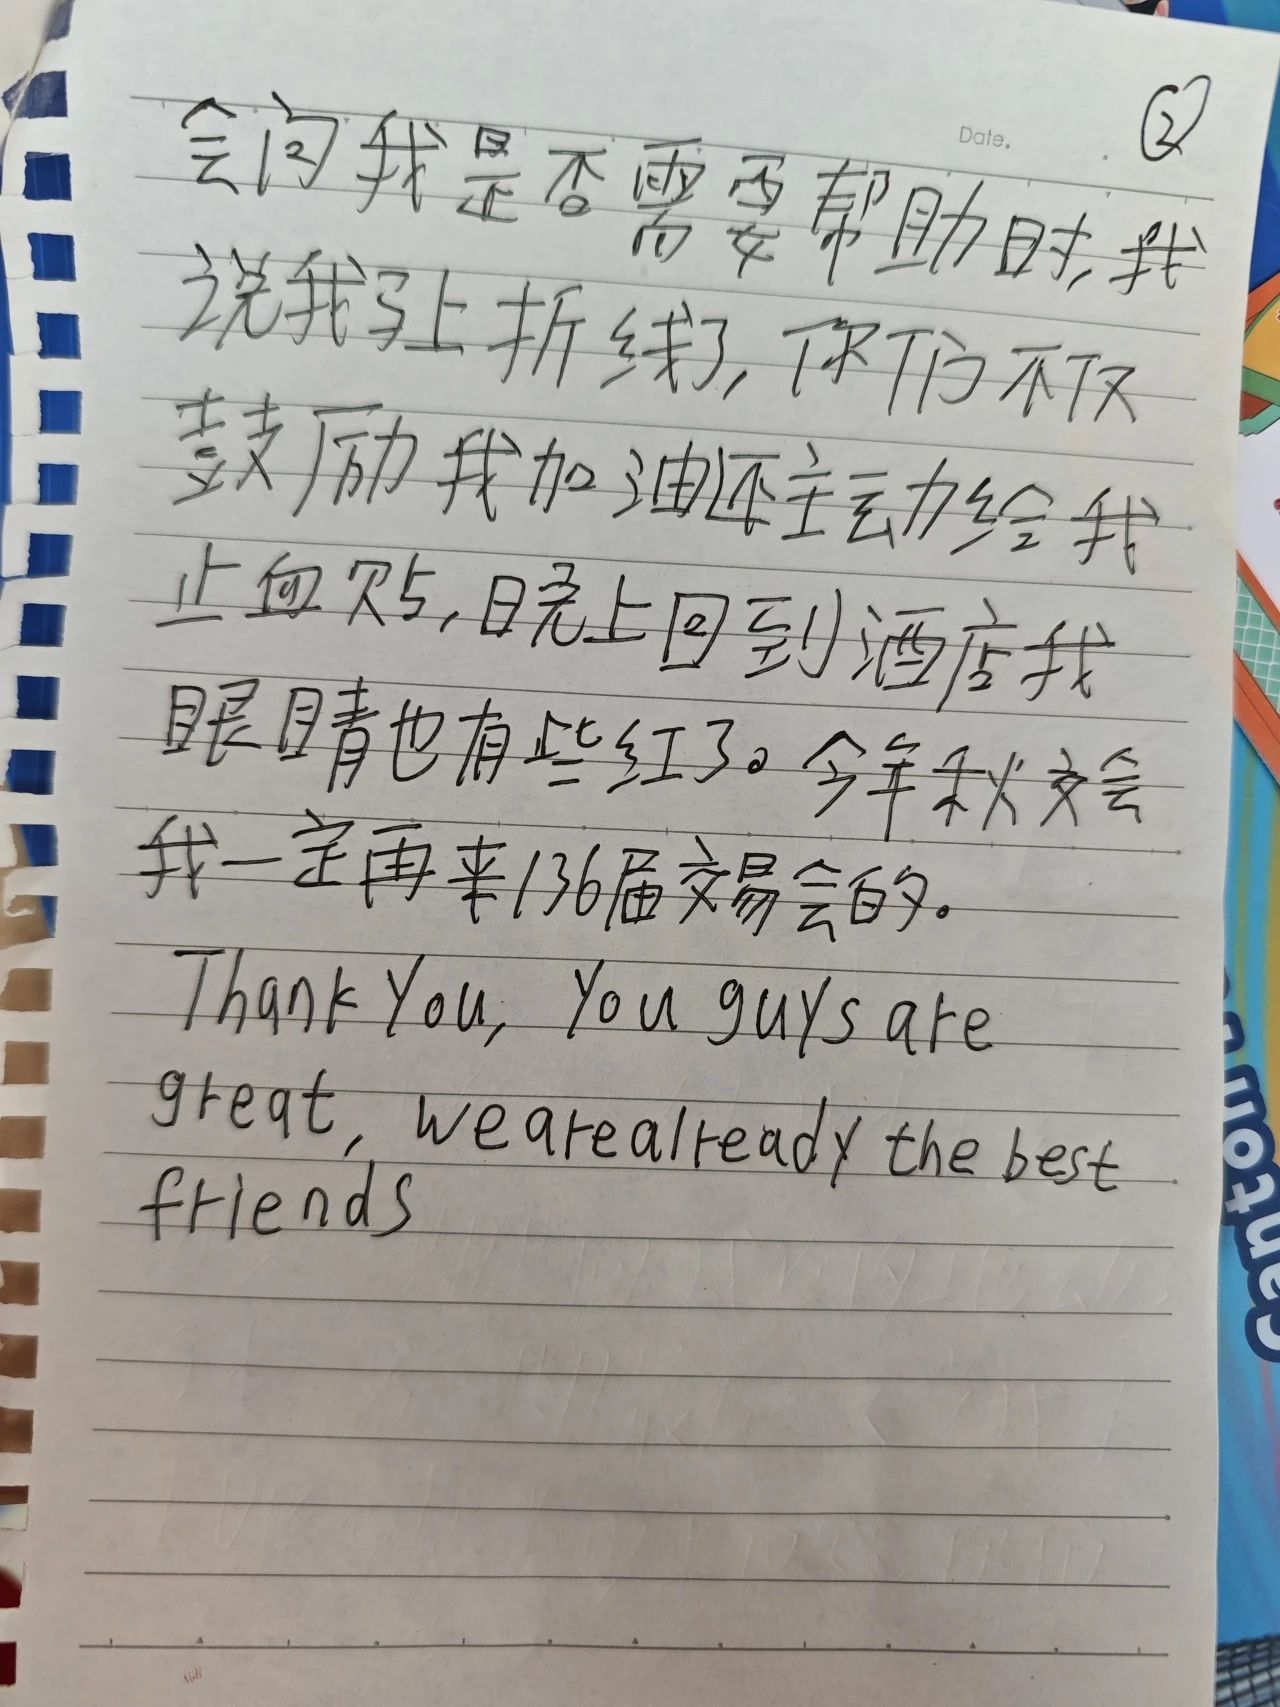 ②
Date.
会问我是否需要帮助时,我
说我马上折线了,你们不仅
鼓励我加油还主动给我
止血贴,晚上回到酒店我
眼睛也有些红了。今年秋交会
我一定再来136届交易会的。
Thank You, You guys are
great, we are already the best
friends
Canton